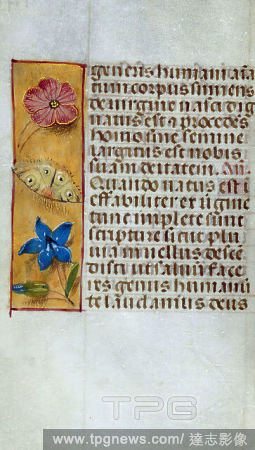 generis humani ani
tum corpus sumens
de virgine nasci dig
natus est et procedes
homo sine semine
largitus est nobis
suam deitatem. An
Quando natus est i
effabiliter ex virgine
tunc implete sunt
scripture sicut plu
via in vellus desce
disti ut salvum face
res genus humanu
te laudamus deus
TPG
www.tpgnews.com/ 達志影像